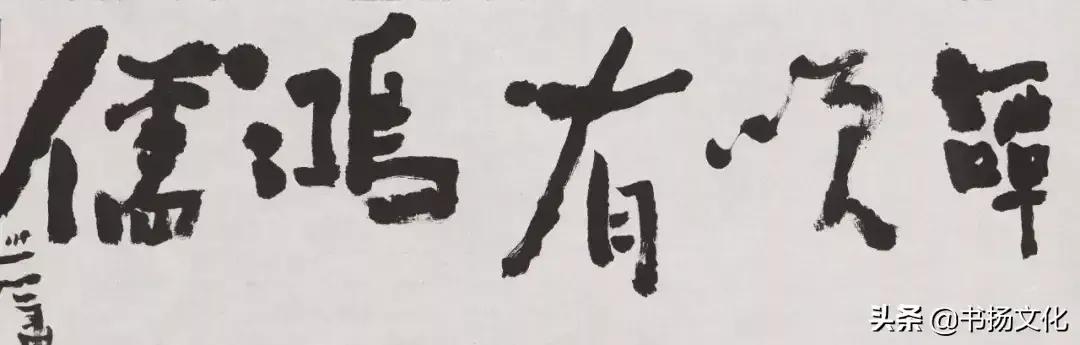 譚笑有鴻儒
头条 @书扬文化